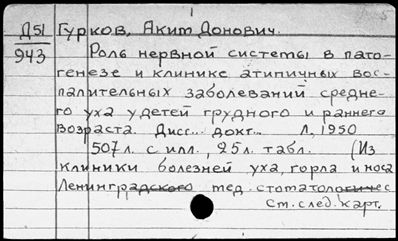 Д51 Гурков, Яким Донович.
943 Роль нервной системы в пато-
генезе и клинике атипичных вос-
палительных заболеваний средне-
го уха у детей грудного и раннего
возраста. Дисс... докт... Л, 1950
507л. с илл., 25л. табл. (Из
клиники болезней уха, горла и носа
Ленинградского мед. стоматологичес
См. след. карт.